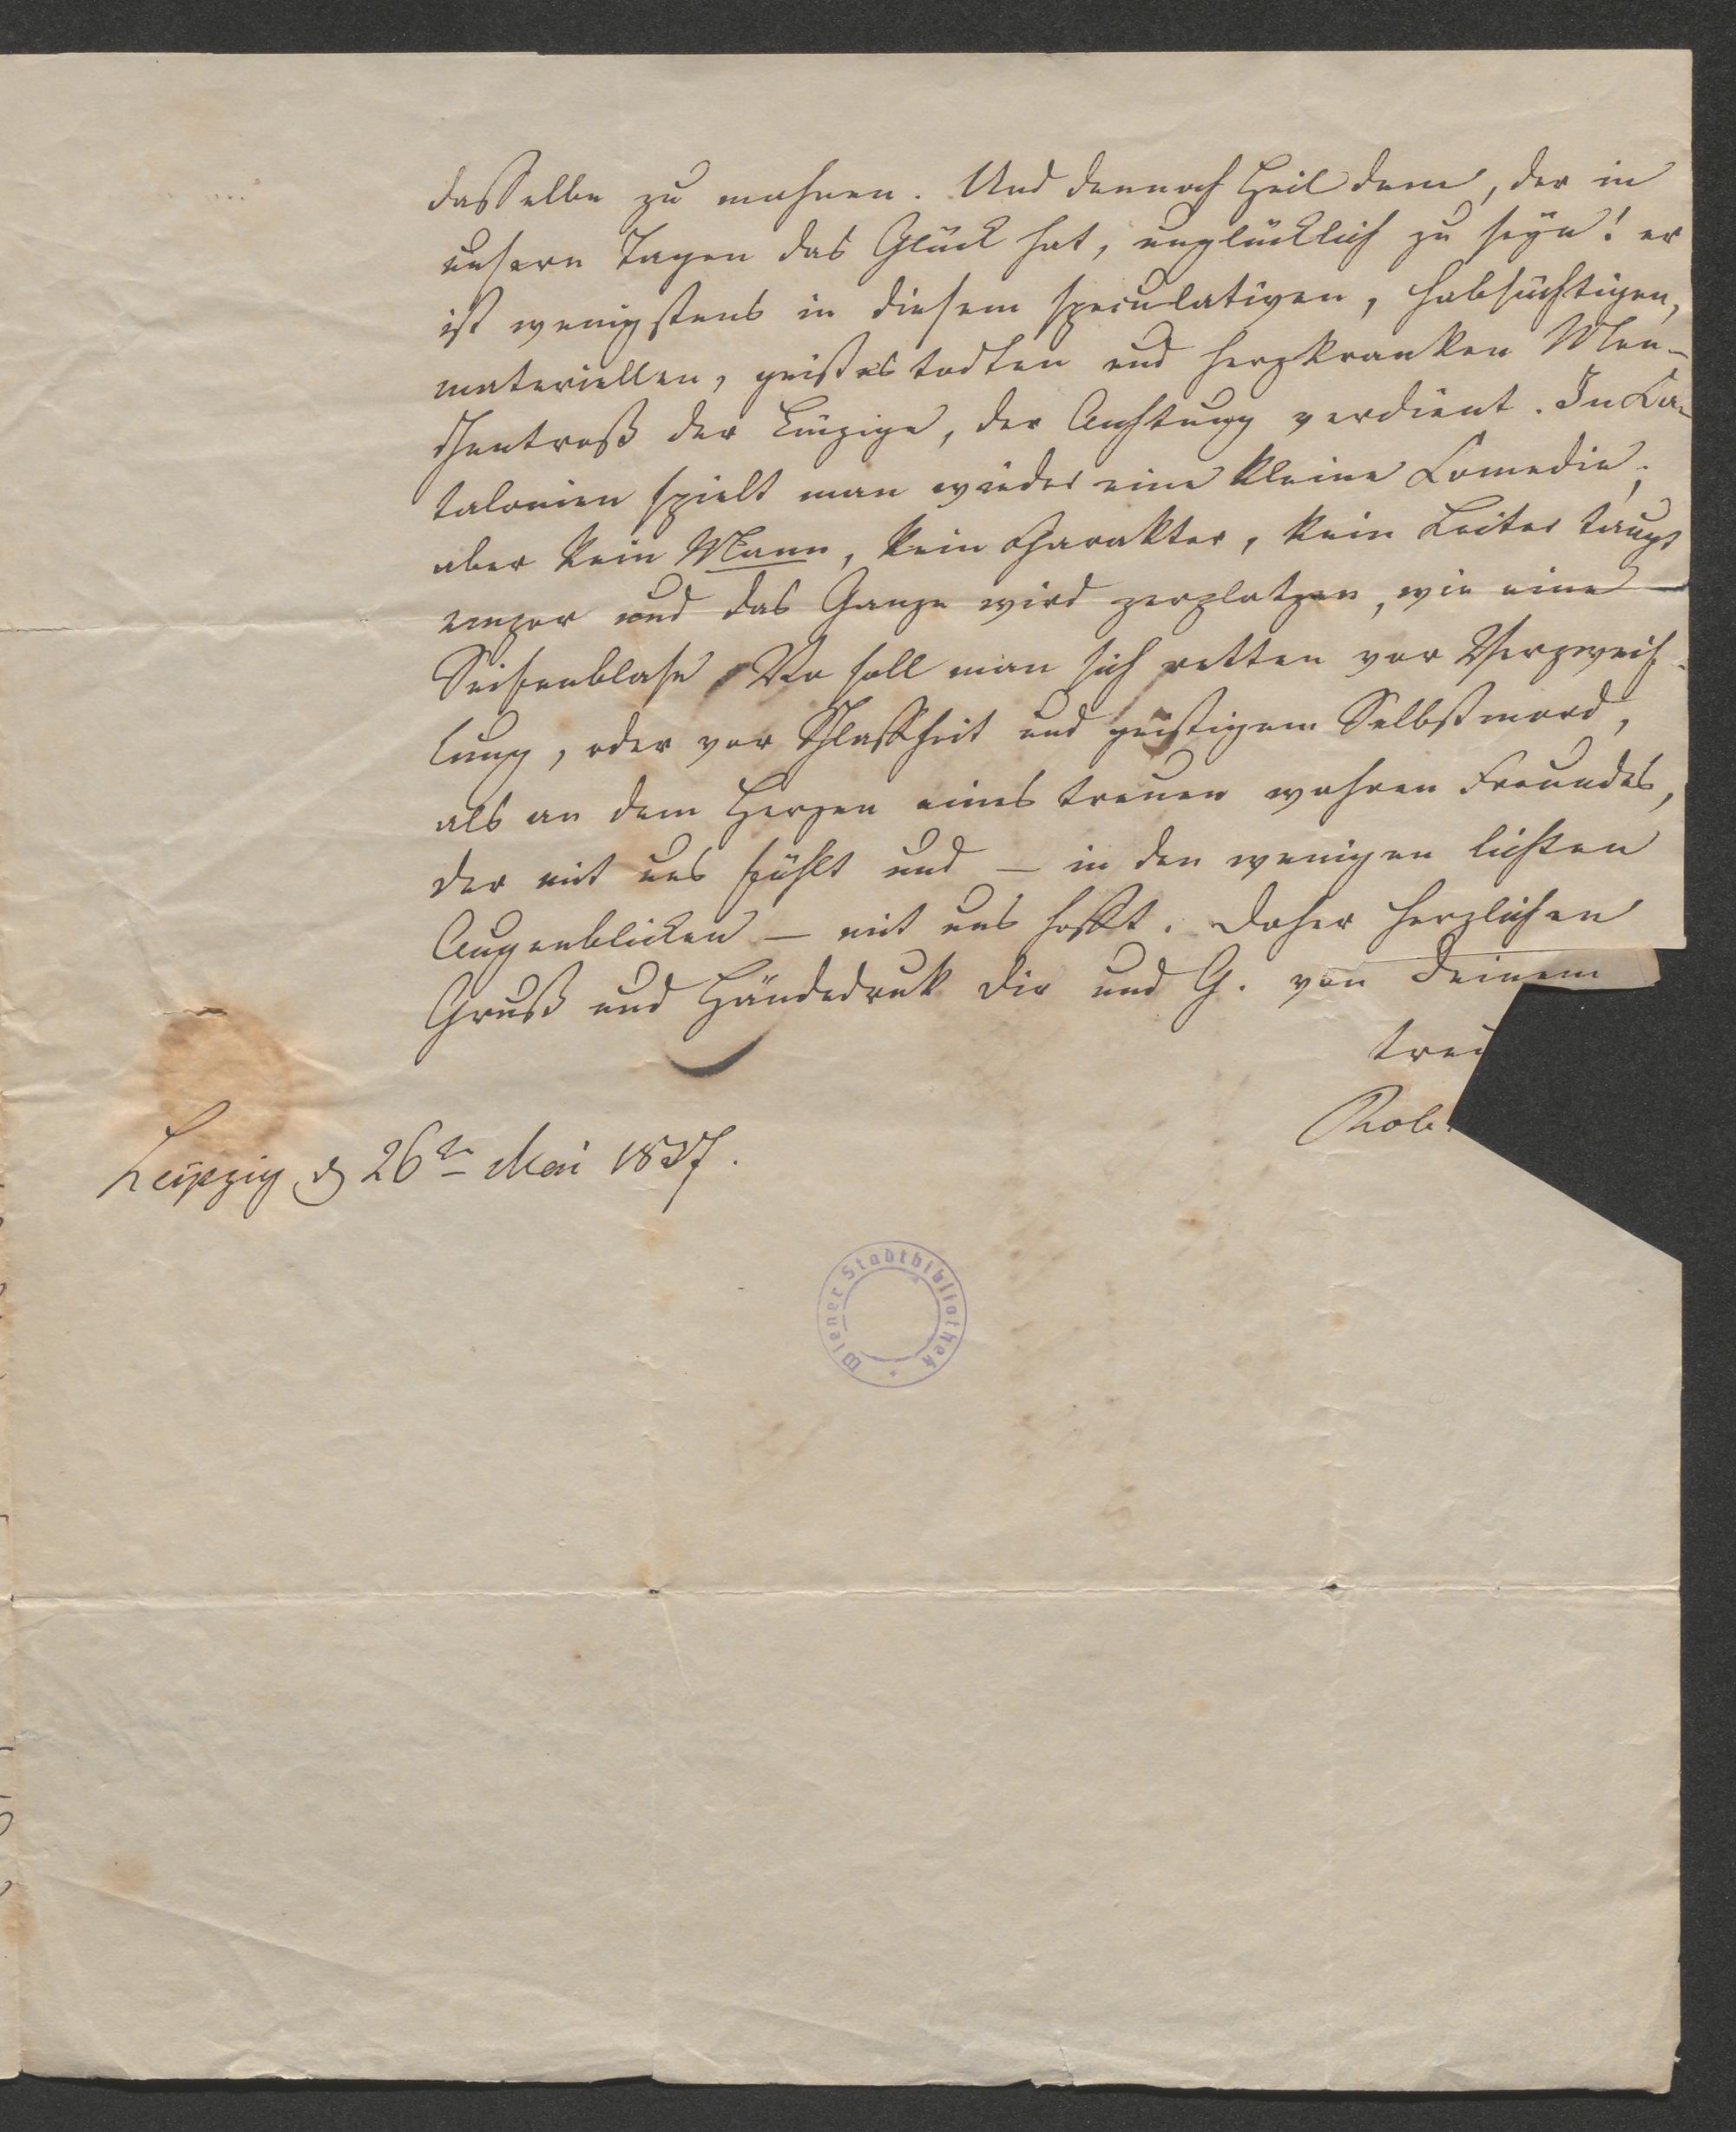 dasselbe zu mahnen. Und dennoch Heil dem, der in
unsern Tagen das Glück hat, unglücklich zu seyn! er
ist wenigstens in diesem speculativen, habsüchtigen,
materiellen, geistestodten und herzkranken Men-
schentroß der Einzige, der Achtung verdient. In Ca-
talonien spielt man wieder eine kleine Comedie;
aber kein Mann, kein Charakter, kein Leiter taugt
empor und das Ganze wird zerplatzen, wie eine
Seifenblase. Wo soll man sich retten vor Verzweif-
lung, oder vor Schlaffheit und geistigem Selbstmord,
als an dem Herzen eines treuen wahren Freundes,
der mit uns fühlt und – in den wenigen lichten
Augenblicken – mit uns hofft. Daher herzlichen
Gruß und Händedruk Dir und G. von Deinem
treu
Rob
Leipzig d 26ten Mai 1837.
Wiener Stadtbibliothek